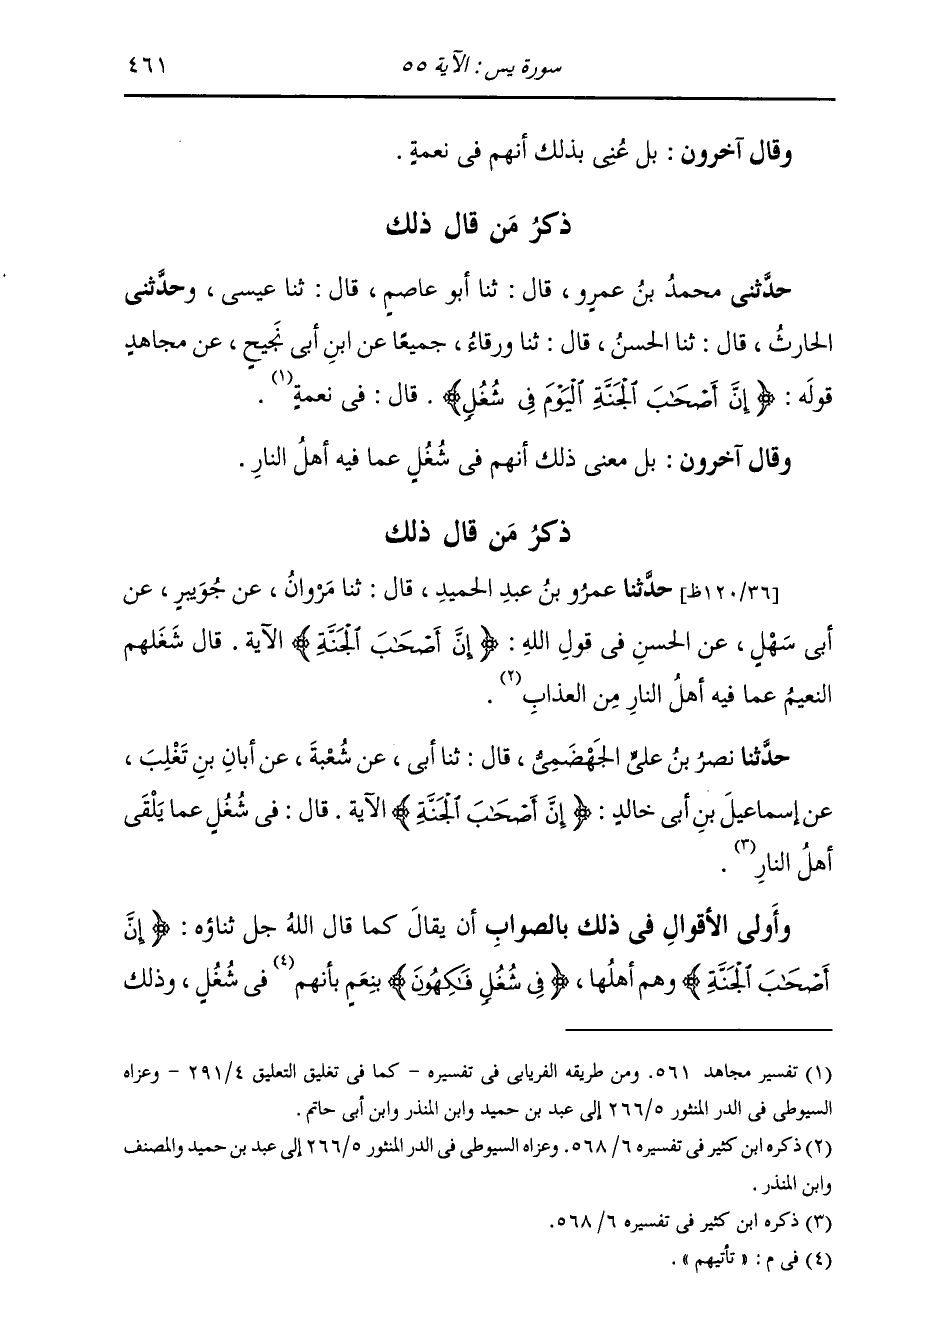 سورة يس : الآية ٥٥
٤٦١
وقال آخرون : بل عُنِى بذلك أنهم فى نعمةٍ .
ذكرُ مَن قال ذلك
حدَّثنى محمدُ بنُ عمرٍو ، قال : ثنا أبو عاصمٍ ، قال : ثنا عيسى ، وحدَّثنى
الحارثُ ، قال : ثنا الحسنُ ، قال : ثنا ورقاءُ ، جميعًا عن ابنِ أبى نَجيحٍ ، عن مجاهدٍ
قولَه : ﴿ إِنَّ أَصْحَٰبَ ٱلْجَنَّةِ ٱلْيَوْمَ فِى شُغُلٍ ﴾ . قال : فى نعمةٍ(١) .
وقال آخرون : بل معنى ذلك أنهم فى شُغُلٍ عما فيه أهلُ النارِ .
ذكرُ مَن قال ذلك
[١٢٠/٣٦ظ] حدَّثنا عمرُو بنُ عبدِ الحميدِ ، قال : ثنا مَرْوانُ ، عن جُوَيبرٍ ، عن
أبى سَهْلٍ ، عن الحسنِ فى قولِ اللهِ : ﴿ إِنَّ أَصْحَٰبَ ٱلْجَنَّةِ ﴾ الآية . قال شَغَلهم
النعيمُ عما فيه أهلُ النارِ مِن العذابِ(٢) .
حدَّثنا نصرُ بنُ علىٍّ الجَهْضَمِىُّ ، قال : ثنا أبى ، عن شُعْبةَ ، عن أبانِ بنِ تَغْلِبَ ،
عن إسماعيلَ بنِ أبى خالدٍ : ﴿ إِنَّ أَصْحَٰبَ ٱلْجَنَّةِ ﴾ الآية . قال : فى شُغُلٍ عما يَلْقَى
أهلُ النارِ(٣) .
وأَولى الأقوالِ فى ذلك بالصوابِ أن يقالَ كما قال اللهُ جل ثناؤه : ﴿ إِنَّ
أَصْحَٰبَ ٱلْجَنَّةِ ﴾ وهم أهلُها ، ﴿ فِى شُغُلٍ فَٰكِهُونَ ﴾ بنِعَمٍ بأنهم(٤) فى شُغُلٍ ، وذلك
(١) تفسير مجاهد ٥٦١. ومن طريقه الفريابى فى تفسيره - كما فى تغليق التعليق ٢٩١/٤ - وعزاه
السيوطى فى الدر المنثور ٢٦٦/٥ إلى عبد بن حميد وابن المنذر وابن أبى حاتم .
(٢) ذكره ابن كثير فى تفسيره ٦/ ٥٦٨. وعزاه السيوطى فى الدر المنثور ٢٦٦/٥ إلى عبد بن حميد والمصنف
وابن المنذر .
(٣) ذكره ابن كثير فى تفسيره ٦/ ٥٦٨.
(٤) فى م : « تأتيهم » .